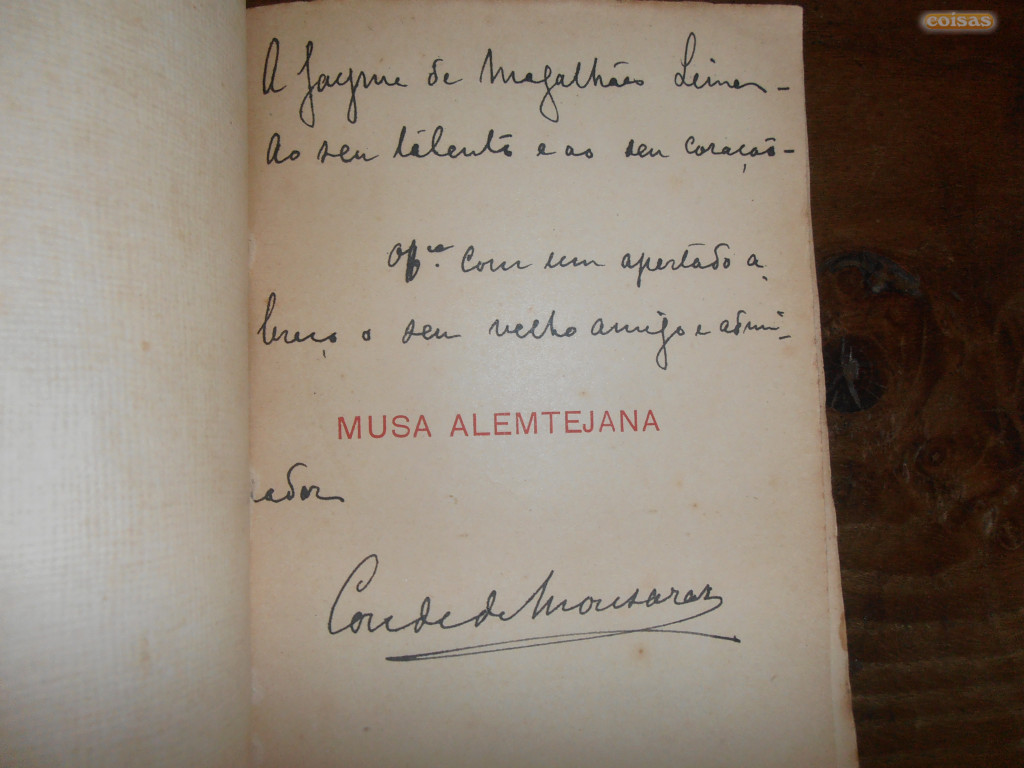 coisas
A Jayme de Magalhães Lima -
Ao seu talento e ao seu coração -
Off.ce com um apertado a
braço o seu velho amigo e admi-
MUSA ALEMTEJANA
rador
Conde de Monsaraz